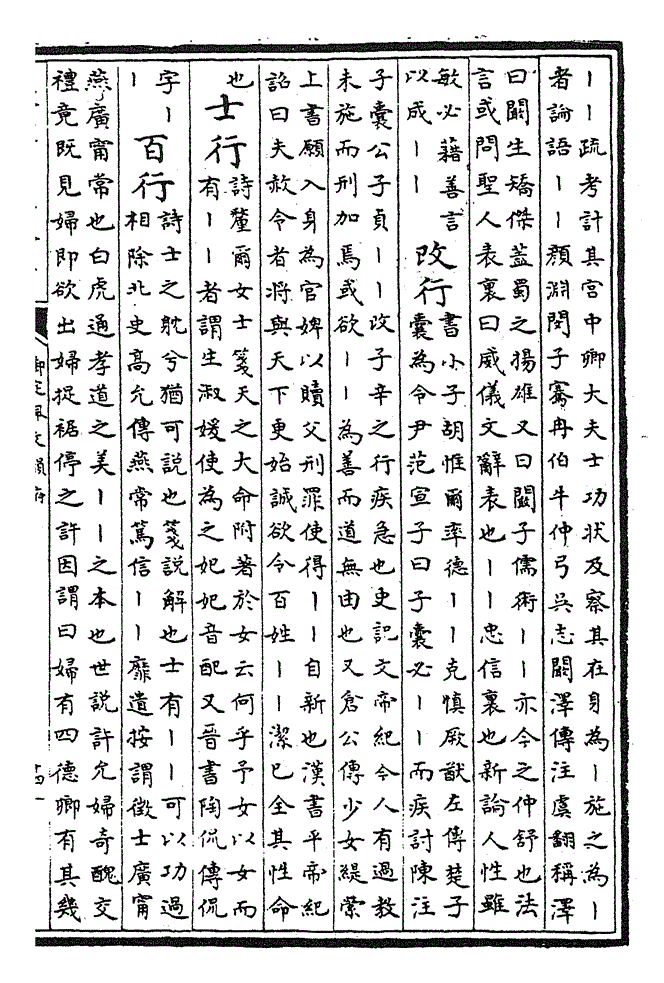 丨丨疏考計其宮中卿大夫士功狀及察其在身為丨施之為丨
者論語丨丨顏淵閔子騫冉伯牛仲弓吳志闞澤傳注虞翻稱澤
曰闞生矯傑蓋蜀之揚雄又曰闞子儒術丨丨亦今之仲舒也法
言或問聖人表裏曰威儀文辭表也丨丨忠信裏也新論人性雖
敏必藉善言
以成丨丨
改行
書小子胡惟爾率德丨丨克慎厥猷左傳楚子
囊為令尹范宣子曰子囊必丨丨而疾討陳注
子囊公子貞丨丨改子辛之行疾急也史記文帝紀今人有過教
未施而刑加焉或欲丨丨為善而道無由也又倉公傳少女緹縈
上書願入身為官婢以贖父刑罪使得丨丨自新也漢書平帝紀
詔曰夫赦令者將與天下更始誠欲令百姓丨丨潔已全其性命
也
士行
詩釐爾女士箋天之大命附著於女云何乎予女以女而
有丨丨者謂生淑媛使為之妃妃音配又晉書陶侃傳侃
字丨
丨
百行
詩士之耽兮猶可説也箋説解也士有丨丨可以功過
相除北史高允傳燕常篤信丨丨靡遺按謂徵士廣甯
燕廣甯常也白虎通孝道之美丨丨之本也世説許允婦奇醜交
禮竟既見婦即欲出婦捉裾停之許因謂曰婦有四德卿有其幾
御定佩文韻府